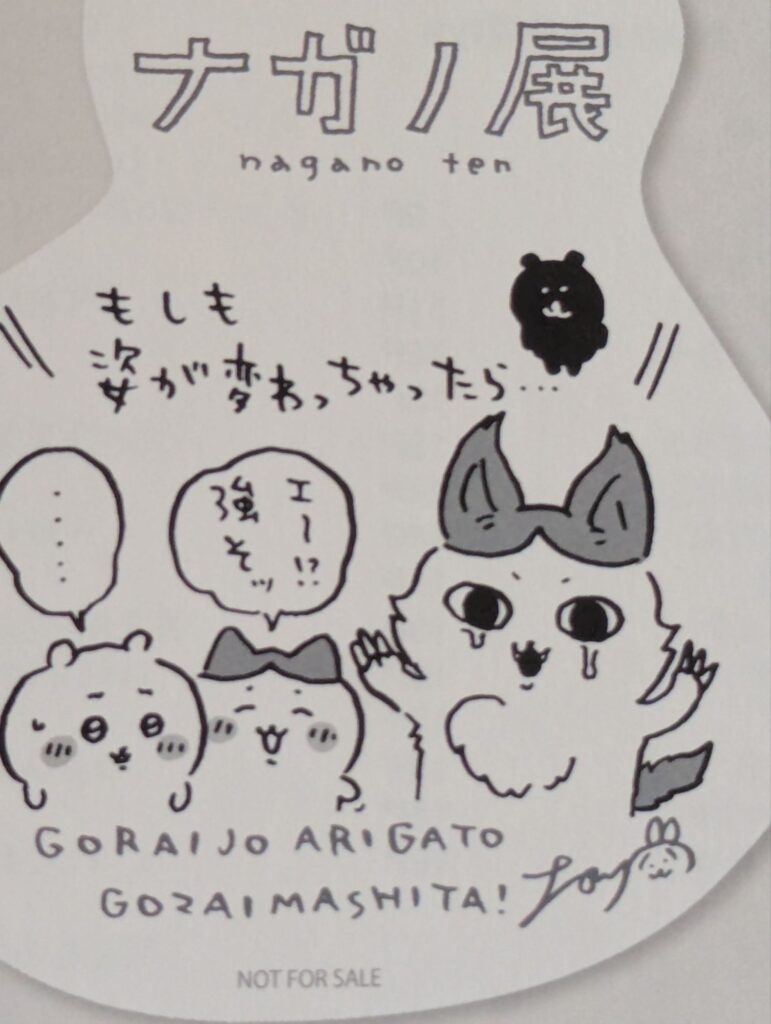 ナガノ展
nagano ten
もしも
姿が変わっちゃったら…
エー!?
強そッ
.....
GORAIJO ARIGATO
GOZAIMASHITA!
NOT FOR SALE